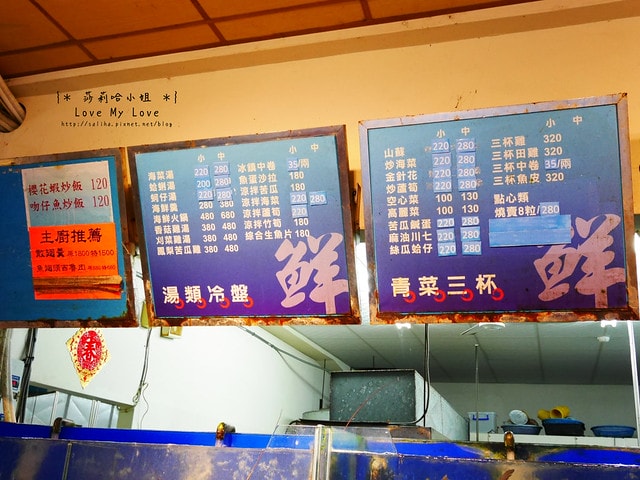 {* 莎莉哈小姐 *}
Love My Love
http://saliha.pixnet.net/blog
櫻花蝦炒飯 120
吻仔魚炒飯 120
主廚推薦
小 中
海菜湯 220 280
蛤蜊湯 200 280
蚵仔湯 220 280
海鮮羹 280 380
海鮮火鍋 480 680
香菇雞湯 380 480
刈菜雞湯 380 480
鳳梨苦瓜雞 380 480
小 中
冰鎮中卷 35/兩
魚蛋沙拉 180
涼拌苦瓜 180
涼拌海菜 220 280
涼拌蘆筍 220
涼拌竹筍 180
綜合生魚片 180
鮮
湯類冷盤
小 中
山蘇 220 280
炒海菜 220 280
金針花 220 280
炒蘆筍 220 280
空心菜 100 130
高麗菜 100 130
苦瓜鹹蛋 220 280
麻油川七 220 280
絲瓜蛤仔 220 280
中
三杯雞 320
三杯田雞 320
三杯中卷 35/兩
三杯魚皮 320
點心類
燒賣8粒/280
鮮
青菜三杯
春